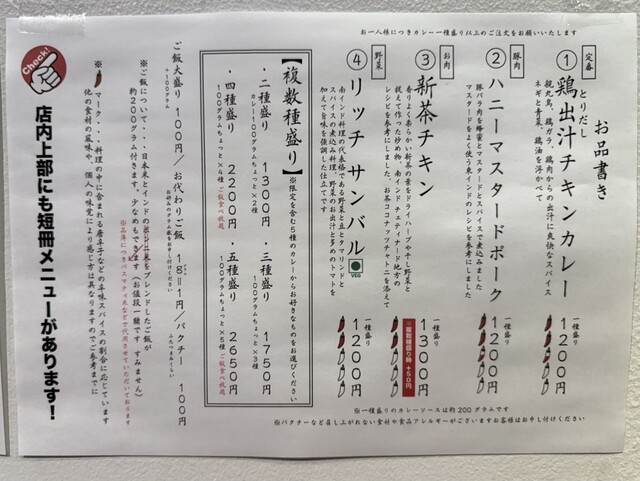 お一人様につきカレー一種盛り以上のご注文をお願いいたします
お品書き
定番
①鶏出汁チキンカレー
とりだし
親丸鳥、鶏ガラ、鶏肉からの出汁に良快なスパイス
ネギと青菜、鶏油を浮かべて
一種盛り
1200円
豚肉
②ハニーマスタードポーク
豚バラ肉を蜂蜜とマスタードとスパイスで煮込みました
マスタードをよく使う東インドのレシピを参考にしました
一種盛り
1200円
お肉
③新茶チキン
香りよくあらい新茶の葉をドライハーブやチリ野菜と
鶏えて作った炒め物、南インドチェティナード地方の
レシピを参考にしました、お茶ココナッツチャトニを添えて
一種盛り
1300円
※複数種盛り時 +50円
野菜
④リッチ サンバル
VEG
南インド料理の代表格である野菜と豆とタマリンドと
スパイスの煮込み料理、野菜のお出汁と多めのトマトを
加えて旨味を強調した仕立てです
一種盛り
1200円
【複数種盛り】
※限定を含む5種のカレーからお好きなものをお選びください
・二種盛り 1300円
カレー100グラムちょっと×2種
・三種盛り 1750円
100グラムちょっと×3種
・四種盛り 2200円
100グラムちょっと×4種 ご飯食べ放題
・五種盛り 2650円
100グラムちょっと×5種 ご飯食べ放題
ご飯大盛り 100円/お代わりご飯 1g=1円/パクチー 100円
+100グラム
お好みのグラム数をお申し付けください
ふたつまみーらい
※ご飯について・・・日本米とインドの出レ二米をブレンドしたご飯が
約200グラム付きます。少なめもできます(お値段一緒です すみません)
※品薄につきバスマティ米などで代用させていただいております
※マーク・・・料理の中に含まれる唐辛子などの辛味スパイスの割合に応じています
他の食材の風味や、個人の味覚により感じ方は異なりますのでご参考までに
Check!
店内上部にも短冊メニューがあります!
※一種盛りのカレーソースは約200グラムです
※パクチーなど召し上がれない食材や食品アレルギーがございますお客様はお申し付けください